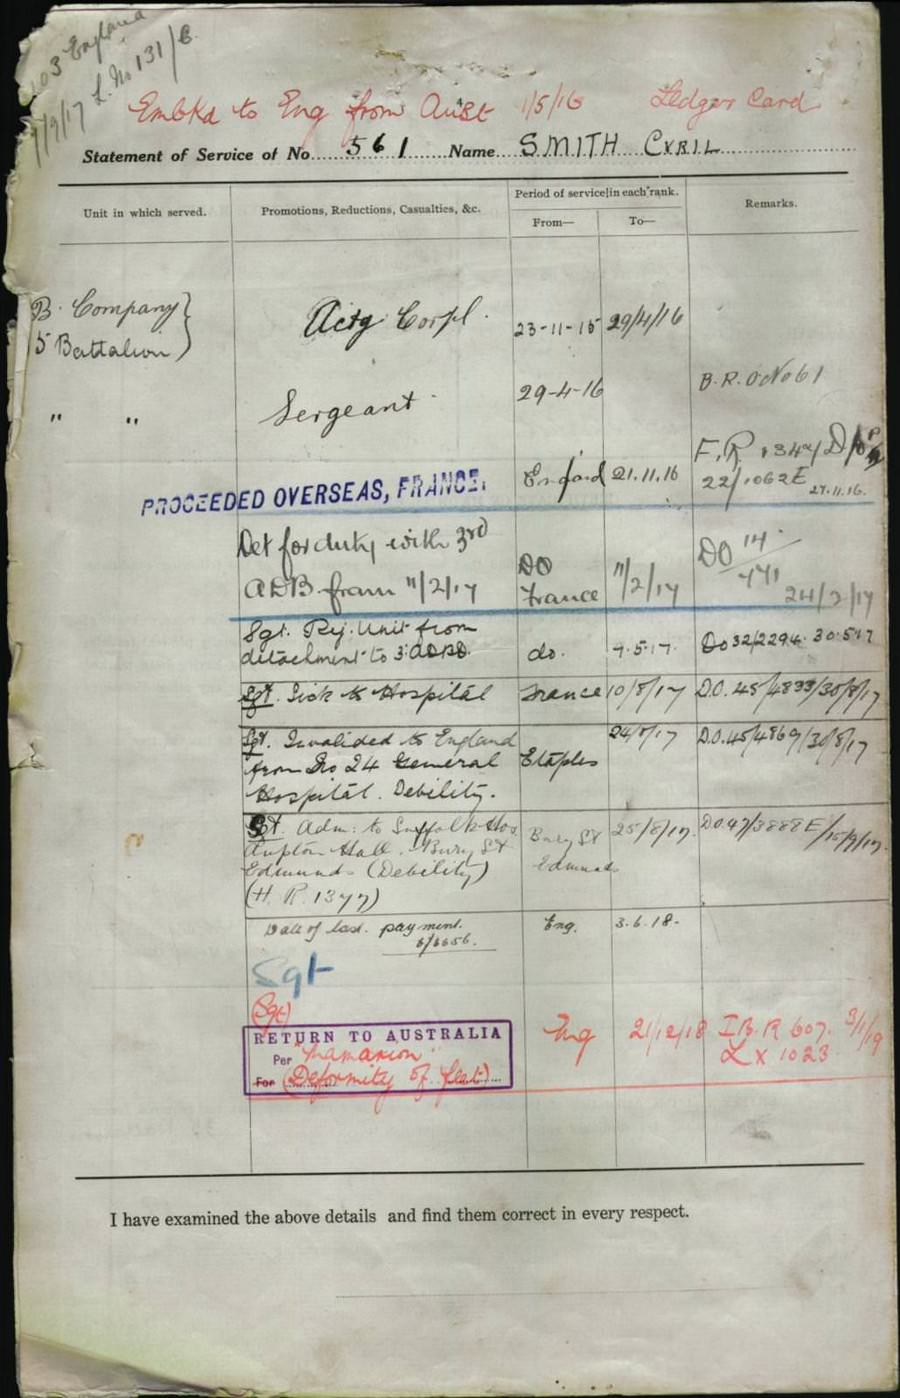 103 England
7/9/17 L. No 131/E
Embkd to Eng from Aust 1/5/16 Ledger Card
Statement of Service of No. 561 Name SMITH CYRIL
Unit in which served. Promotions, Reductions, Casualties, &c. Period of service in each rank. Remarks.
From— To—
B. Company } Actg Corpl. 23-11-15 29/4/16
5 Battalion
" " Sergeant 29-4-16 B.R.O No 61
PROCEEDED OVERSEAS, FRANCE. England 21.11.16 22/1062E 27.11.16.
Det for duty with 3rd
ADB from 11/2/17 DO France 11/2/17 DO 14/441 24/2/17
Sgt. Rej. Unit from
detachment to 3 do. 7.5.17. Do 32/2294. 30.5.17
Sgt. Sick to Hospital France 10/8/17 D.O. 45/4833/30/8/17
Sgt. Invalided to England 24/8/17 D.O.45/4869/30/8/17
from No 24 General Etaples
Hospital. Debility.
Sgt. Adm: to Suffolk Hos 25/8/17. DO.47/3888E/15/9/17.
Ampton Hall. Bury St Bury St
Edmunds (Debility) Edmunds
(H. R. 1377)
Date of last payment. Eng. 3.6.18.
6/6656.
Sgt
(Sgt)
RETURN TO AUSTRALIA Eng 21/12/18 I.B.R 607. 3/1/19
Per
For (Deformity of feet) Lx 1023
I have examined the above details and find them correct in every respect.